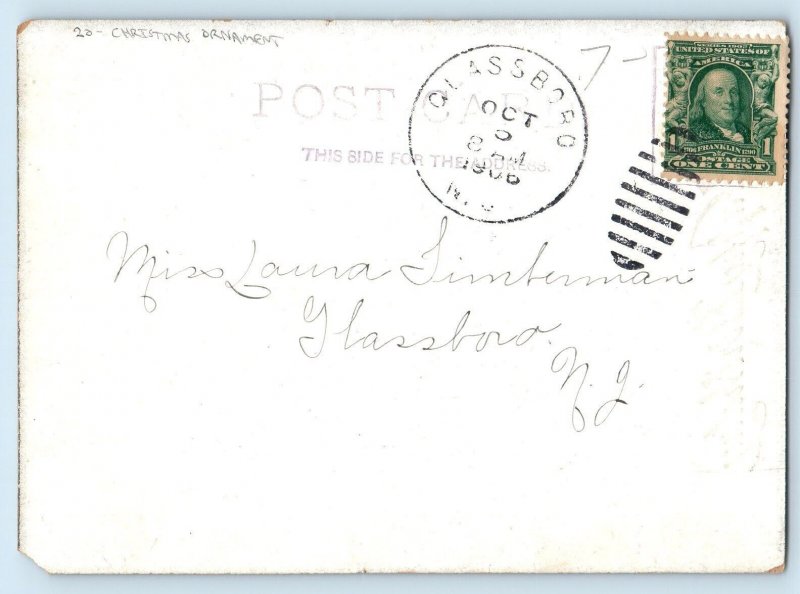 20- CHRISTMAS ORNAMENT
7-
POST CARD
THIS SIDE FOR THE ADDRESS.
GLASSBORO
OCT
8 AM
1906
N.J.
SERIES 1902
UNITED STATES OF
AMERICA
1706 FRANKLIN 1790
1
POSTAGE
ONE CENT
Miss Laura Timberman
Glassboro.
N.J.